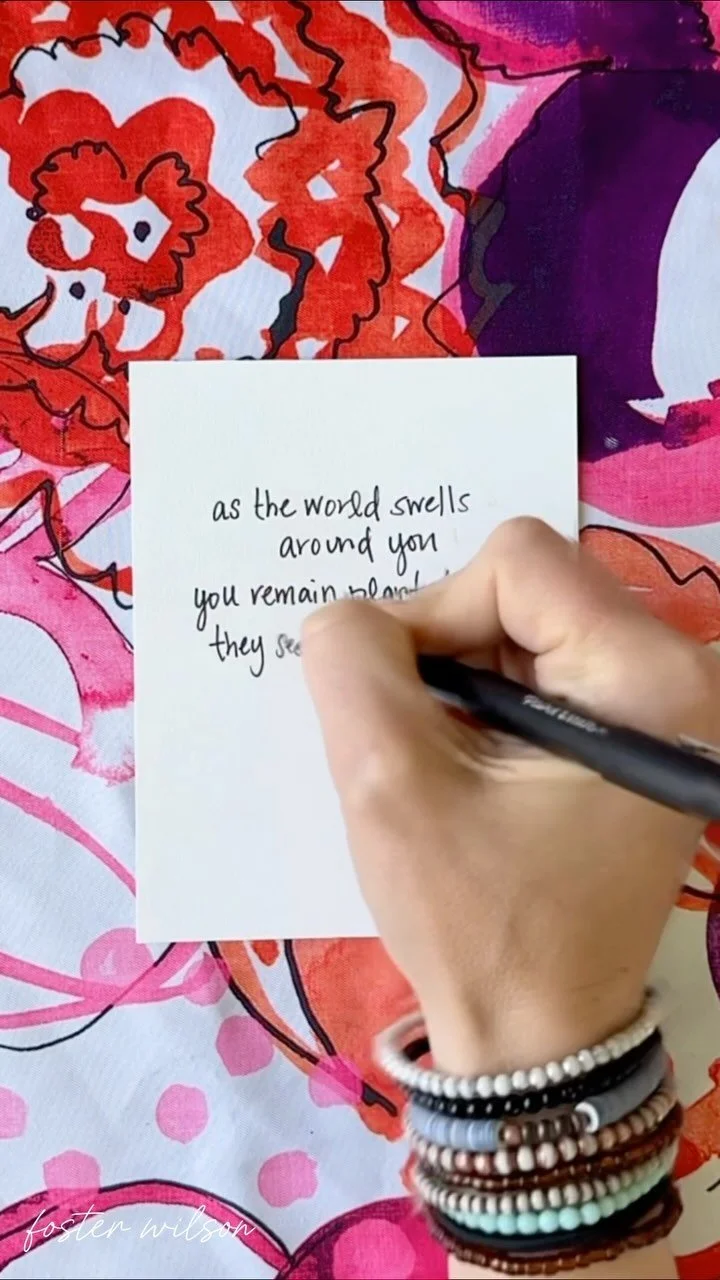 as the world swells
around you
you remain
they
foster wilson